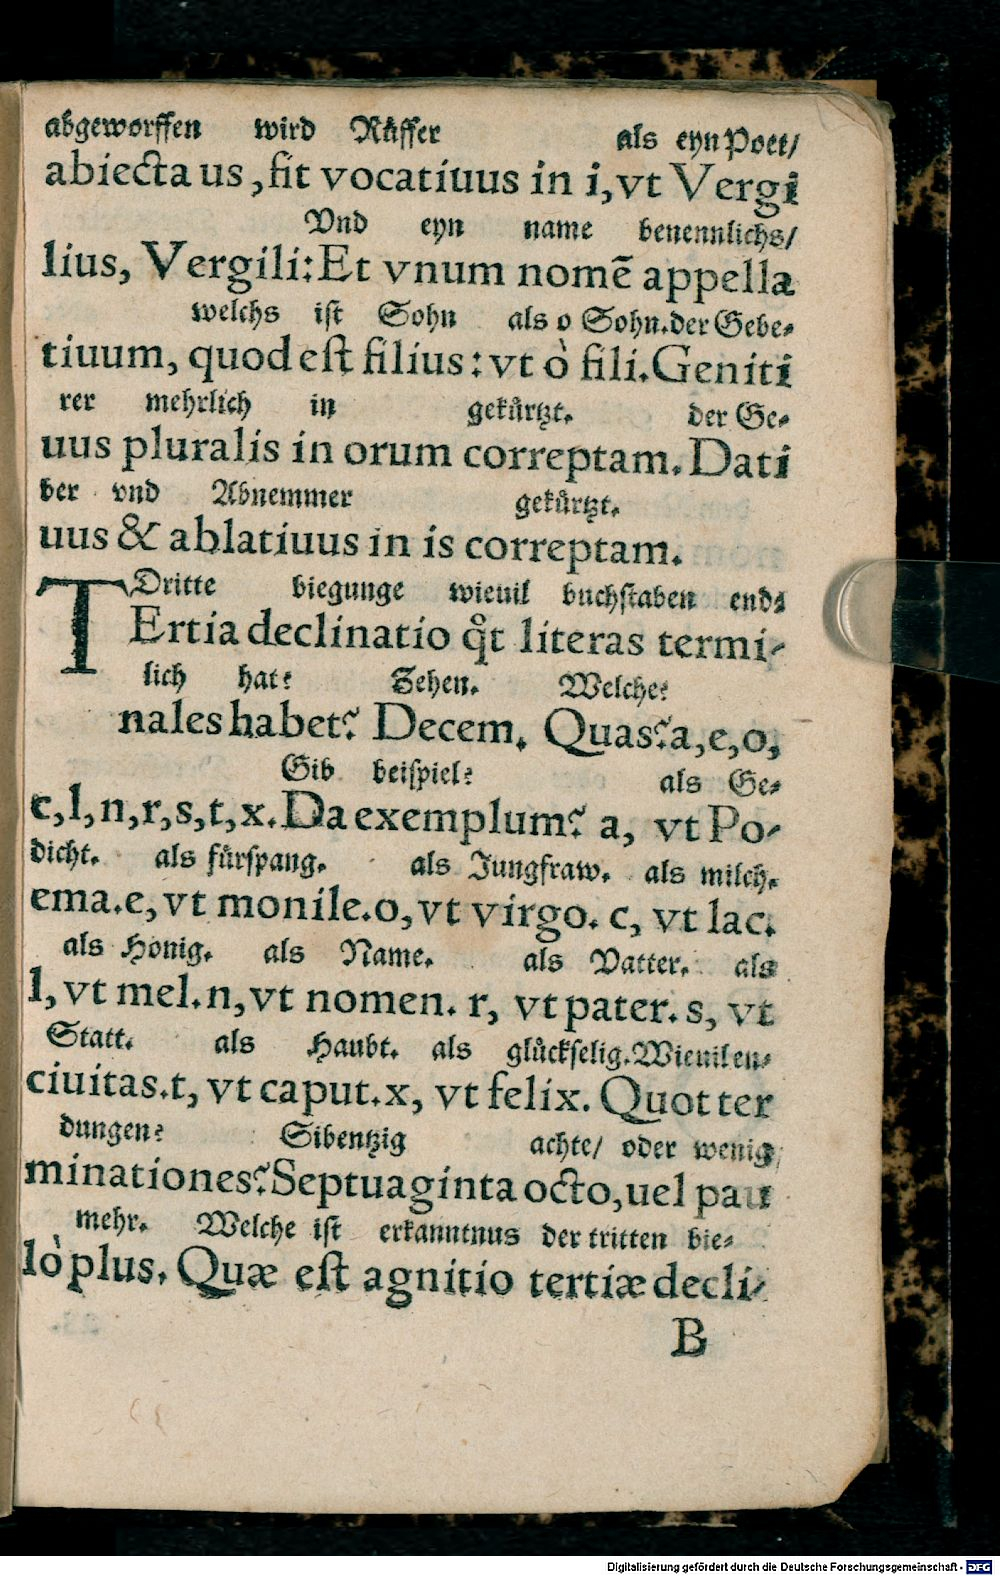 abgeworffen wird Råffer als eyn Poet/
abiecta us, fit vocatiuus in i, vt Vergi
Vnd eyn name benennlichs/
lius, Vergili: Et vnum nomē appella
welchs ist Sohn als o Sohn. der Gebe⸗
tiuum, quod est filius: vt ò fili. Geniti
rer mehrlich in gekůrtzt. der Ge⸗
uus pluralis in orum correptam. Dati
ber vnd Abnemmer gekůrtzt.
uus & ablatiuus in is correptam.
Dritte biegunge wieuil buchstaben end⸗
TErtia declinatio q̊t literas termi⸗
lich hat? Zehen. Welche?
nales habet? Decem. Quas? a, e, o,
Gib beispiel? als Ge⸗
c, l, n, r, s, t, x. Da exemplum? a, vt Po⸗
dicht. als fůrspang. als Jungfraw. als milch.
ema. e, vt monile. o, vt virgo. c, vt lac.
als Honig. als Name. als Vatter. als
l, vt mel. n, vt nomen. r, vt pater. s, vt
Statt. als Haubt. als glůckselig. Wieuil en⸗
ciuitas. t, vt caput. x, vt felix. Quot ter
dungen? Sibentzig achte/ oder wenig
minationes? Septuaginta octo, uel pau
mehr. Welche ist erkanntnus der tritten bie⸗
lò plus. Quæ est agnitio tertiæ decli⸗
B
Digitalisierung gefördert durch die Deutsche Forschungsgemeinschaft - DFG